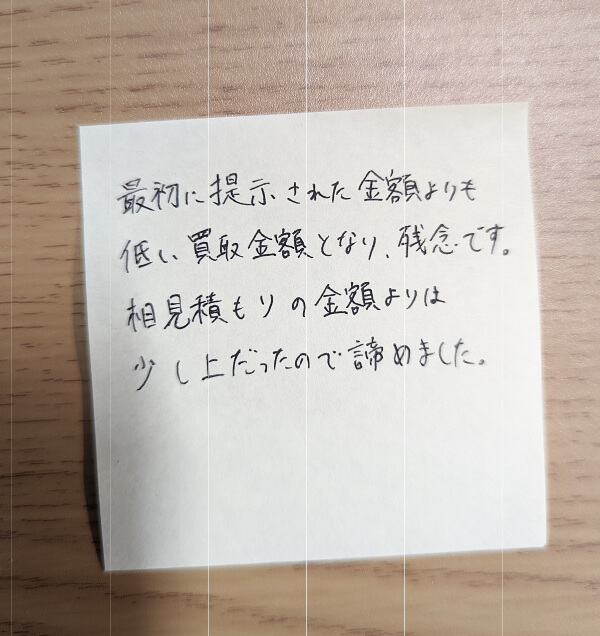 最初に提示された金額よりも
低い買取金額となり、残念です。
相見積もりの金額よりは
少し上だったので諦めました。